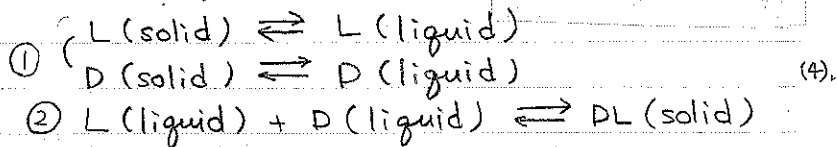 ① L (solid) ⇄ L (liquid)
D (solid) ⇄ D (liquid) (4).
② L (liquid) + D (liquid) ⇄ DL (solid)